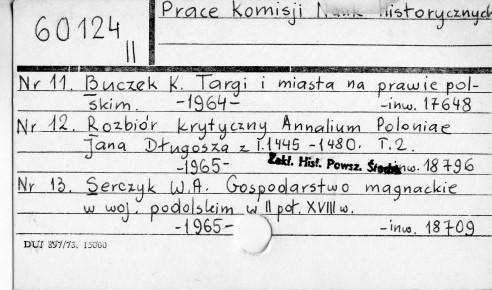 60124
II
Prace Komisji Nauk Historycznych
Nr 11. Buczek K. Targi i miasta na prawie pol-
skim. -1964- -inw. 17648
Nr 12. Rozbiór krytyczny Annalium Poloniae
Jana Długosza z l. 1445 -1480. T. 2.
-1965- Zakł. Hist. Powsz. Średn. inw. 18796
Nr 13. Serczyk W. A. Gospodarstwo magnackie
w woj. podolskim w II poł. XVIII w.
-1965- -inw. 18709
DUJ 897/73. 15000